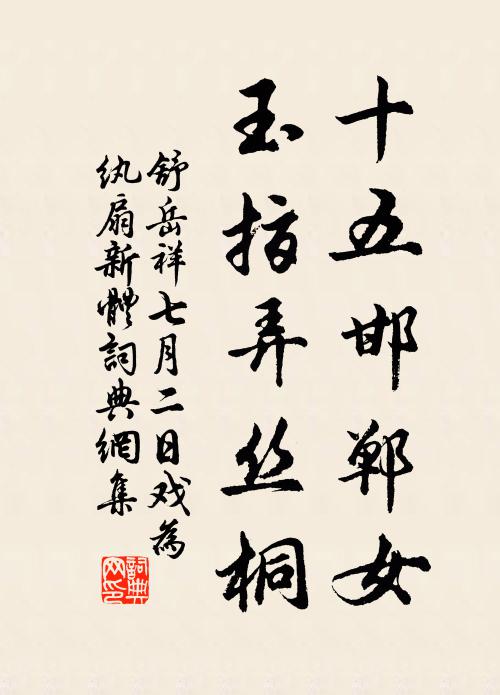 十五邯郸女
玉指弄丝桐
舒岳祥七月二日戏為
纨扇新體詞典網集
詞典
网印